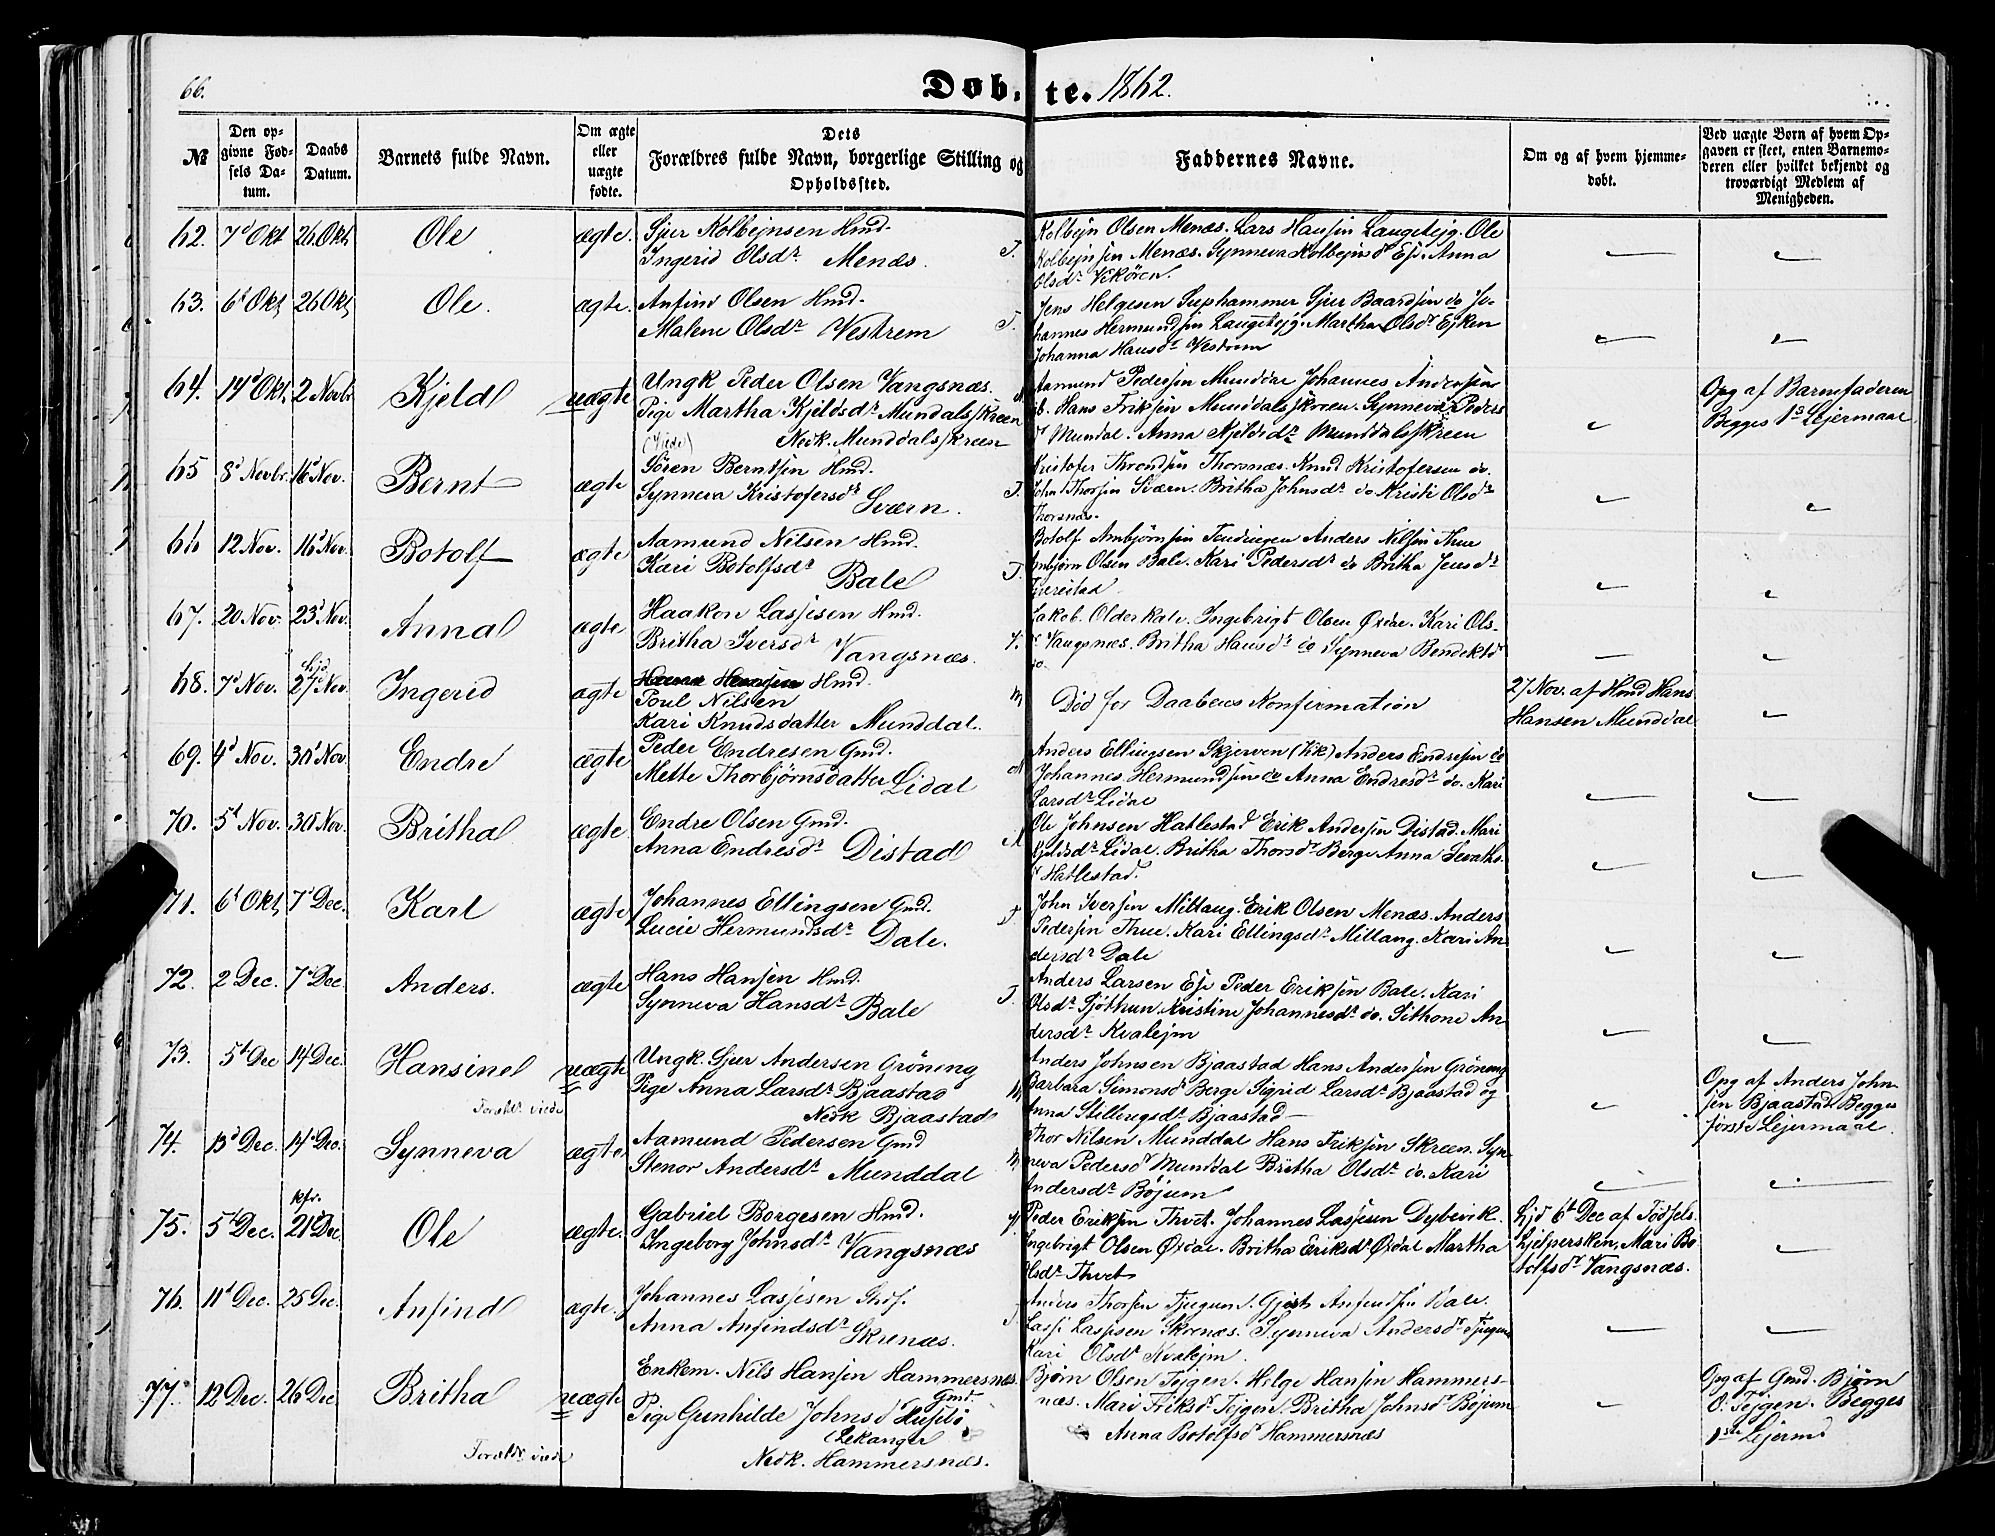 66.
Døbte. 1862.
№
Den opgivne Fødsels Datum.
Daabs Datum.
Barnets fulde Navn.
Om ægte eller uægte fødte.
Dets Forældres fulde Navn, borgerlige Stilling og Opholdssted.
Faddernes Navne.
Om og af hvem hjemmedøbt.
Ved uægte Børn af hvem Opgaven er skeet, enten Barnemoderen eller hvilket bekjendt og troværdigt Medlem af Menigheden.
62. 7d Okt 26 Okt Ole ægte. Sjur Kolbejnsen Hmd.
Ingerid Olsdr Menæs.
T. Kolbejn Olsen Menæs. Lars Hansen Laugetejg. Ole
Kolbejnsen Menæs. Synneva Kolbejnsdr Ese. Anna
Olsdr Vikøren.
63. 6d Okt 26 Okt Ole. ægte. Anfind Olsen Hmd.
Malene Olsdr Vestrem
T. Jens Helgesen Suphammer Sjur Baardsen do Jo-
hannes Hermundsen Laugetejg. Martha Olsdr Ejken
Johanna Hansdr Vestrem
64. 14d Okt. 2 Novbr Kjeld uægte Ungk Peder Olsen Vangsnæs.
Pige Martha Kjeldsdr Mundalsskreen
Nedk. Munddalsskreen
Aamund Pedersen Munddal Johannes Andersen
ib. Hans Eriksen Munddalsskreen. Synneva Peders
dr Mundal. Anna Kjeldsdr Munddalsskreen
Opg af Barnefaderen
Begges 1s Lejermaal
65 8d Novbr. 16d Nov. Bernt ægte Søren Berntsen Hmd.
Synneva Kristofersdr Sværn.
T. Kristofer Throndsen Thorsnæs. Knud Kristofersen do.
John Thorsen Sværn. Britha Johnsdr do Kristi Olsdr
Thorsnæs.
66 12 Nov. 16d Nov. Botolf ægte Aamund Nilsen Hmd.
Kari Botolfsdr Bale
T. Botolf Ambjørnsen Anders Nilsen Thue
Ambjørn Olsen Bale. Kari Pedersdr do Britha Jensdr
67. 20 Nov. 23d Nov. Anna ægte Haakon Lassesen Hmd.
Britha Iversdr Vangsnæs.
Jakob Olderkale. Ingebrigt Olsen Øvdre. Kari Ols-
dr Vangsnæs. Britha Hansdr do Synneva Bendektsdr
do.
68. 7d Nov. hjd 27d Nov. Ingerid ægte Hmd.
Poul Nilsen
Kari Knudsdatter Munddal.
M Død før Daabens Konfirmation
27 Nov. af Hmd Hans
Hansen Munddal
69. 4d Nov. 30d Nov. Endre ægte Peder Endresen Gmd.
Mette Thorbjørnsdatter Lidal
Anders Ellingsen Skjerven (Vik) Anders Endresen do
Johannes Hermundsen do Anna Endresdr do. Kari
Larsdr Lidal
70. 5d Nov. 30d Nov. Britha ægte Endre Olsen Gmd.
Anna Endresdr Distad
Ole Johnsen Hatlestad Erik Andersen Distad. Mari
Kjeldsdr Lidal. Britha Thorsdr Berge Anna Sevaths
dr Hatlestad.
71. 6d Okt, 7d Dec. Karl ægte Johannes Ellingsen Gmd.
Lucie Hermundsdr Dale.
T John Iversen Millaug. Erik Olsen Menæs. Anders
Pedersen Thue. Kari Ellingsdr Millaug. Kari An-
dersdr Dale
72. 2 Dec. 7d Dec. Anders. ægte Hans Hansen Hmd.
Synneva Hansdr Bale
T Anders Larsen Ese Peder Eriksen Bale. Kari
Olsdr Sjøthun. Kristine Johannesdr do. Sithone An-
dersdr Kvalejm
73. 5d Dec 14d Dec. Hansine uægte Ungk. Sjur Andersen Grøning
Pige Anna Larsdr Bjaastad
Nedk Bjaastad
Foræld. viede
M Anders Johnsen Bjaastad Hans Andersen Grøning
Barbara Simonsdr Berge Sigrid Larsdr Bjaastad og
Anna Stillaugsdr Bjaastad
Opg af Anders John-
sen Bjaastad. Begges
første Lejermaal.
74. 13d Dec. 14d Dec. Synneva ægte Aamund Pedersen Gmd
Stenor Andersdr Munddal
M Thor Nilsen Munddal Hans Eriksen Skreen. Syn-
neva Pedersdr Munddal Britha Olsdr do. Kari
Andersdr Bøjum
75. 5d Dec. kfr. 21d Dec. Ole ægte. Gabriel Borgesen Hmd.
Ingeborg Johnsdr Vangsnæs
Peder Eriksen Thvet. Johannes Lassesen Dybevik.
Ingebrigt Olsen Øxdal. Britha Eriksdr Øxdal Martha
Olsdr Thvet
hjd 6d Dec af Fødsels-
hjelpersken, Mari Bo-
tolfsdr Vangsnæs.
76. 11d Dec. 25 Dec. Anfind ægte. Johannes Lassesen
Anna Anfindsdr Skrenæs.
Anders Thorsen Tjugum. Gjest Anfindsen Bale.
Lasse Lassesen Skrenæs. Synneva Andersdr Tjugum
Kari Olsdr Kvalejm.
77. 12 Dec. 26 Dec Britha uægte Enkem. Nils Hansen Hammersnæs.
Gmd.
Pige Gunhilde Johnsd Husebø
(Lekanger
Nedk. Hammersnæs.
Foræld. viede
Bjørn Olsen Tejgen. Helge Hansen Hammers-
næs. Mari Eriksdr Tejgen. Britha Johnsdr Bøjum
Anna Botolfsdr Hammersnæs
Opg af Gmd. Bjørn
O. Tejgen. Begges
1ste Lejermd